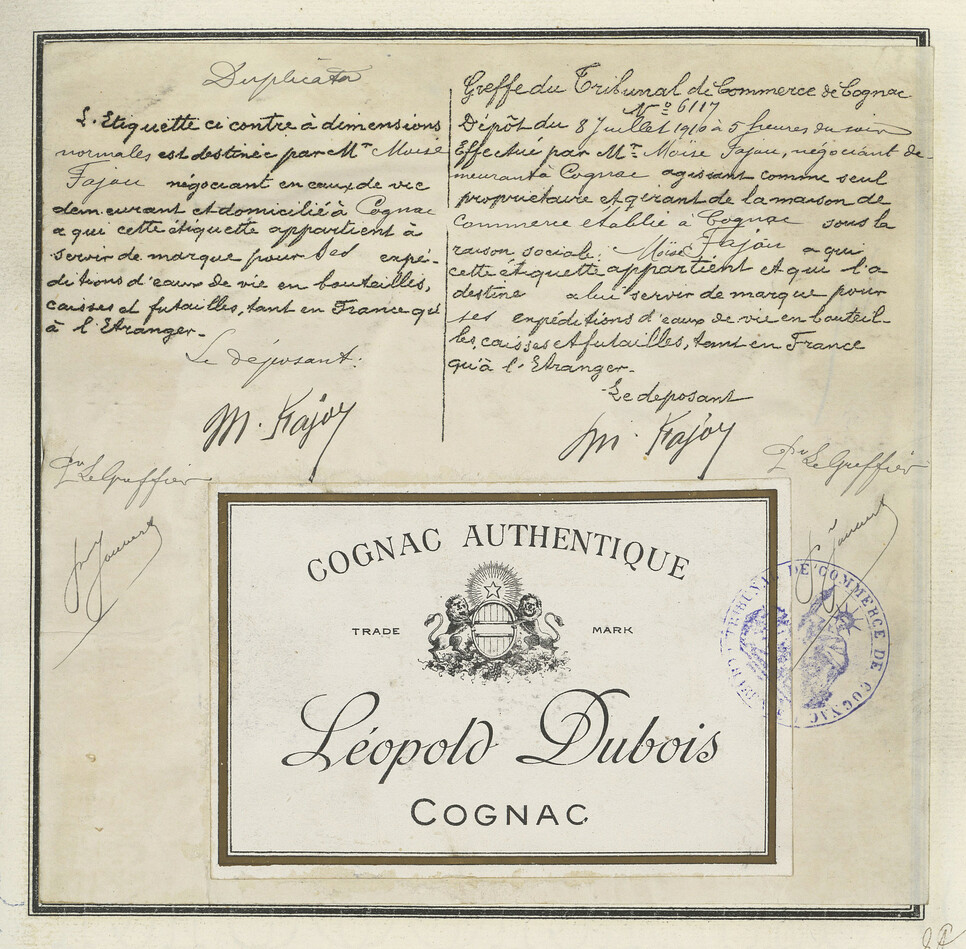 Duplicata
L'Etiquette ci contre à dimensions
normales est destinée par Mr Moïse
Fajou négociant en eaux de vie
demeurant et domicilié à Cognac
a qui cette étiquette appartient à
servir de marque pour ses expé-
ditions d'eaux de vie en bouteilles,
caisses et futailles, tant en France qu'
à l'Etranger.
Le déposant:
M. Fajou
Pr Le Greffier
Greffe du Tribunal de Commerce de Cognac
No 6117
Dépôt du 8 Juillet 1910 à 5 heures du soir
Effectué par Mr Moïse Fajou, négociant de-
meurant à Cognac agissant comme seul
propriétaire et gérant de la maison de
commerce etablie à Cognac sous la
raison sociale: Moïse Fajou a qui
cette étiquette appartient et qui l'a
destine a lui servir de marque pour
ses expéditions d'eaux de vie en bouteil-
les, caisses et futailles, tant en France
qu'à l'Etranger.
Le deposant
M. Fajou
Pr Le Greffier
COGNAC AUTHENTIQUE
TRADE MARK
Léopold Dubois
COGNAC
TRIBUNAL DE COMMERCE DE COGNAC